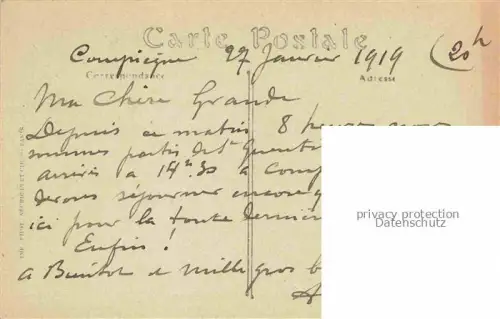 Carte Postale
Compiègne 27 Janvier 1919 (20h
Correspondance Adresse
Ma Chère Grande
Depuis ce matin 8 heures nous
sommes partis de St Quentin
arrivés à 14h30 à Comp
devons séjourner encore q
ici pour la toute dernière
Enfin !
privacy protection
Datenschutz
à Bientôt et mille gros b